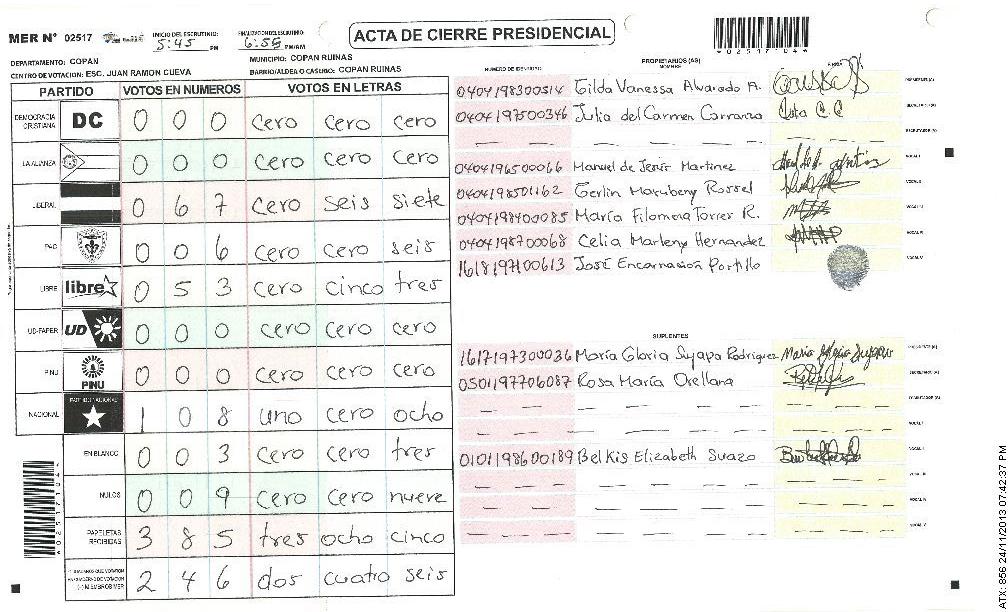 MER N° 02517
INICIO DEL ESCRUTINIO: 5:45 PM
FINALIZACION DEL ESCRUTINIO: 6:55 PM/AM
ACTA DE CIERRE PRESIDENCIAL
*02517104*
DEPARTAMENTO: COPAN
MUNICIPIO: COPAN RUINAS
CENTRO DE VOTACION: ESC. JUAN RAMON CUEVA
BARRIO/ALDEA O CASERIO: COPAN RUINAS
PARTIDO VOTOS EN NUMEROS VOTOS EN LETRAS
DEMOCRACIA CRISTIANA DC 0 0 0 cero cero cero
LA ALIANZA 0 0 0 cero cero cero
LIBERAL 0 6 7 cero seis siete
PAC 0 0 6 cero cero seis
LIBRE libre 0 5 3 cero cinco tres
UD-FAPER UD 0 0 0 cero cero cero
PINU PINU 0 0 0 cero cero cero
NACIONAL PARTIDO NACIONAL 1 0 8 uno cero ocho
EN BLANCO 0 0 3 cero cero tres
NULOS 0 0 9 cero cero nueve
PAPELETAS RECIBIDAS 3 8 5 tres ocho cinco
2 4 6 dos cuatro seis
NUMERO DE IDENTIDAD PROPIETARIOS (AS) NOMBRE FIRMA
0404198300514 Gilda Vanessa Alvarado A. PRESIDENTE (A)
0404197500346 Julia del Carmen Carranza SECRETARIO (A)
— — — — — ESCRUTADOR (A)
0404196500066 Manuel de Jesús Martinez VOCAL I
0404198501162 Gerlin Marubeny Rossel VOCAL II
0404198400085 María Filomena Torres R.
0404198700068 Celia Marleny Hernandez
1618197100613 José Encarnasión Portillo
SUPLENTES
1617197300036 María Gloria Suyapa Rodriguez
0501197706087 Rosa María Orellana SECRETARIO (A)
0101198600189 Belkis Elizabeth Suazo
*02517104*
ATX: 856 24/11/2013 07:42:37 PM